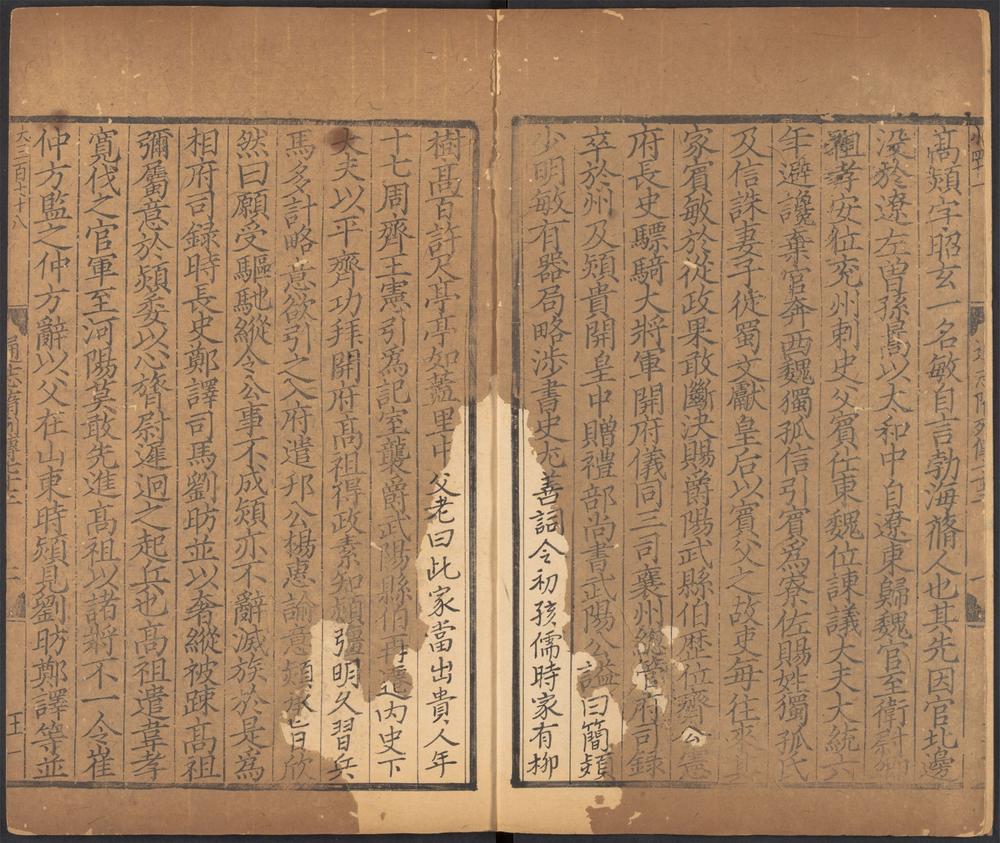 高熲字昭玄一名敏自言勃海蓨人也其先因官北邊
没於遼左曽孫暠以太和中自遼東歸魏官至衛尉卿
祖孝安位兖州刺史父賔仕東魏位諫議大夫大統六
年避讒棄官奔西魏獨孤信引賔爲寮佐賜姓獨孤氏
及信誅妻子徙蜀文獻皇后以賔父之故吏每往來其
家賔敏於從政果敢斷決賜爵陽武縣伯歴位齊公憲
府長史驃騎大將軍開府儀同三司襄州總管府司録
卒於州及熲貴開皇中贈禮部尚書武陽公諡曰簡熲
少明敏有器局略涉書史尤善詞令初孩儒時家有栁
樹髙百許尺亭亭如葢里中父老曰此家當出貴人年
十七周齊王憲引爲記室襲爵武陽縣伯再遷内史下
大夫以平齊功拜開府髙祖得政素知熲彊明久習兵
馬多計略意欲引之入府遣邘公楊惠諭意熲承旨欣
然曰願受驅馳縱令公事不成熲亦不辭滅族於是爲
相府司録時長史鄭譯司馬劉昉並以奢縱被踈髙祖
彌屬意於熲委以心膂尉遲迥之起兵也髙祖遣韋孝
寛伐之官軍至河陽莫敢先進髙祖以諸將不一令崔
仲方監之仲方辭以父在山東時熲見劉昉鄭譯等並
大三百六十八